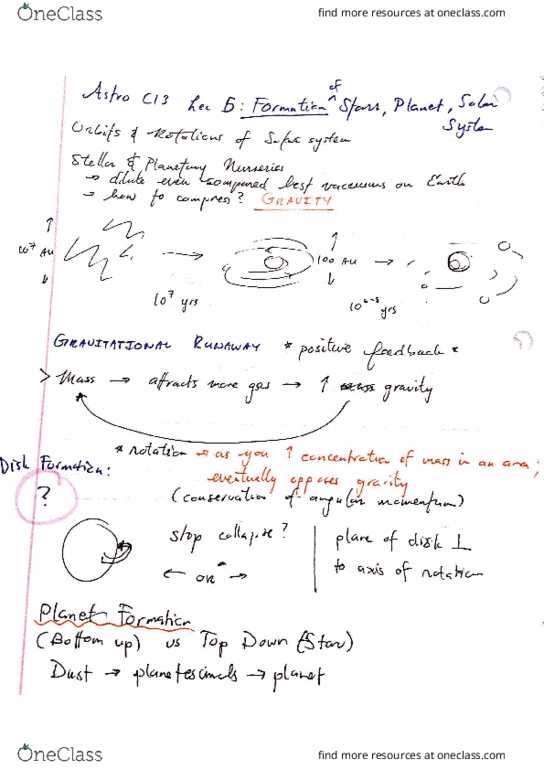 OneClass
find more resources at oneclass.com
Astro C13 Lec 5: Formation of Stars, Planet, Solar System
Orbits & Rotations of Solar system
Stellar & Planetary Nurseries
→ dilute even compared best vacuums on Earth
→ how to compress? GRAVITY
10⁷ AU
→
100 AU
→
10⁷ yrs
yrs
GRAVITATIONAL RUNAWAY * positive feedback *
> Mass → attracts more gas → ↑ gravity
* rotation → as you ↑ concentration of mass in an area;
eventually opposes gravity
Disk Formation:
?
(conservation of angular momentum)
stop collapse?
← on →
plane of disk ⊥
to axis of rotation
Planet Formation
(Bottom up) vs Top Down (Star)
Dust → planetesimals → planet
OneClass
find more resources at oneclass.com